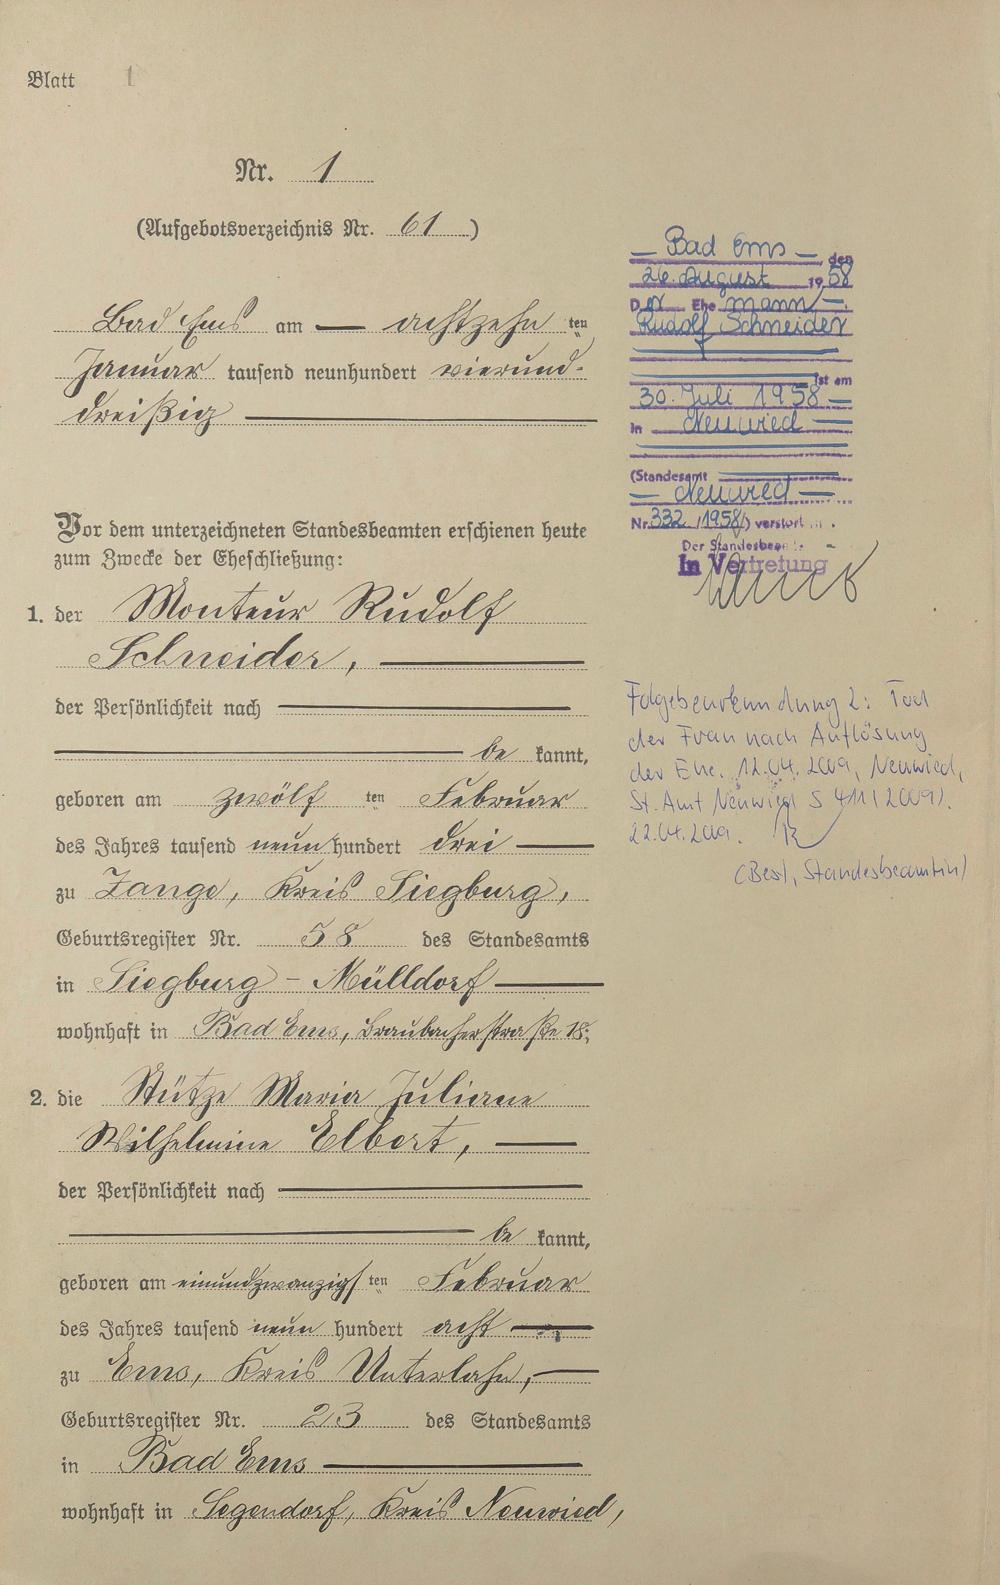 Blatt 1
Nr. 1
(Aufgebotsverzeichnis Nr. 61)
Bad Ems am — achtzehn ten
Januar tausend neunhundert vierund-
dreißig
Vor dem unterzeichneten Standesbeamten erschienen heute
zum Zwecke der Eheschließung:
1. der Monteur Rudolf
Schneider,
der Persönlichkeit nach
be kannt,
geboren am zwölf ten Februar
des Jahres tausend neun hundert drei
zu Zange, Kreis Siegburg,
Geburtsregister Nr. 58 des Standesamts
in Siegburg-Mülldorf
wohnhaft in Bad Ems, Braubacherstraße 18;
2. die Stütze Maria Juliane
Wilhelmine Elbert,
der Persönlichkeit nach
be kannt,
geboren am einundzwanzigs ten Februar
des Jahres tausend neun hundert acht
zu Ems, Kreis Unterlahn,
Geburtsregister Nr. 23 des Standesamts
in Bad Ems
wohnhaft in Segendorf, Kreis Neuwied,
— Bad Ems —, den
26. August 1958
Der Ehemann —
Rudolf Schneider
ist am
30. Juli 1958 —
in Neuwied
(Standesamt
— Neuwied —
Nr. 332/1958) verstorben.
Der Standesbeamte
In Vertretung
Folgebeurkundung 2: Tod
der Frau nach Auflösung
der Ehe. 12.04.2009, Neuwied,
St.Amt Neuwied S 411/2009).
22.04.2009.
Standesbeamtin)